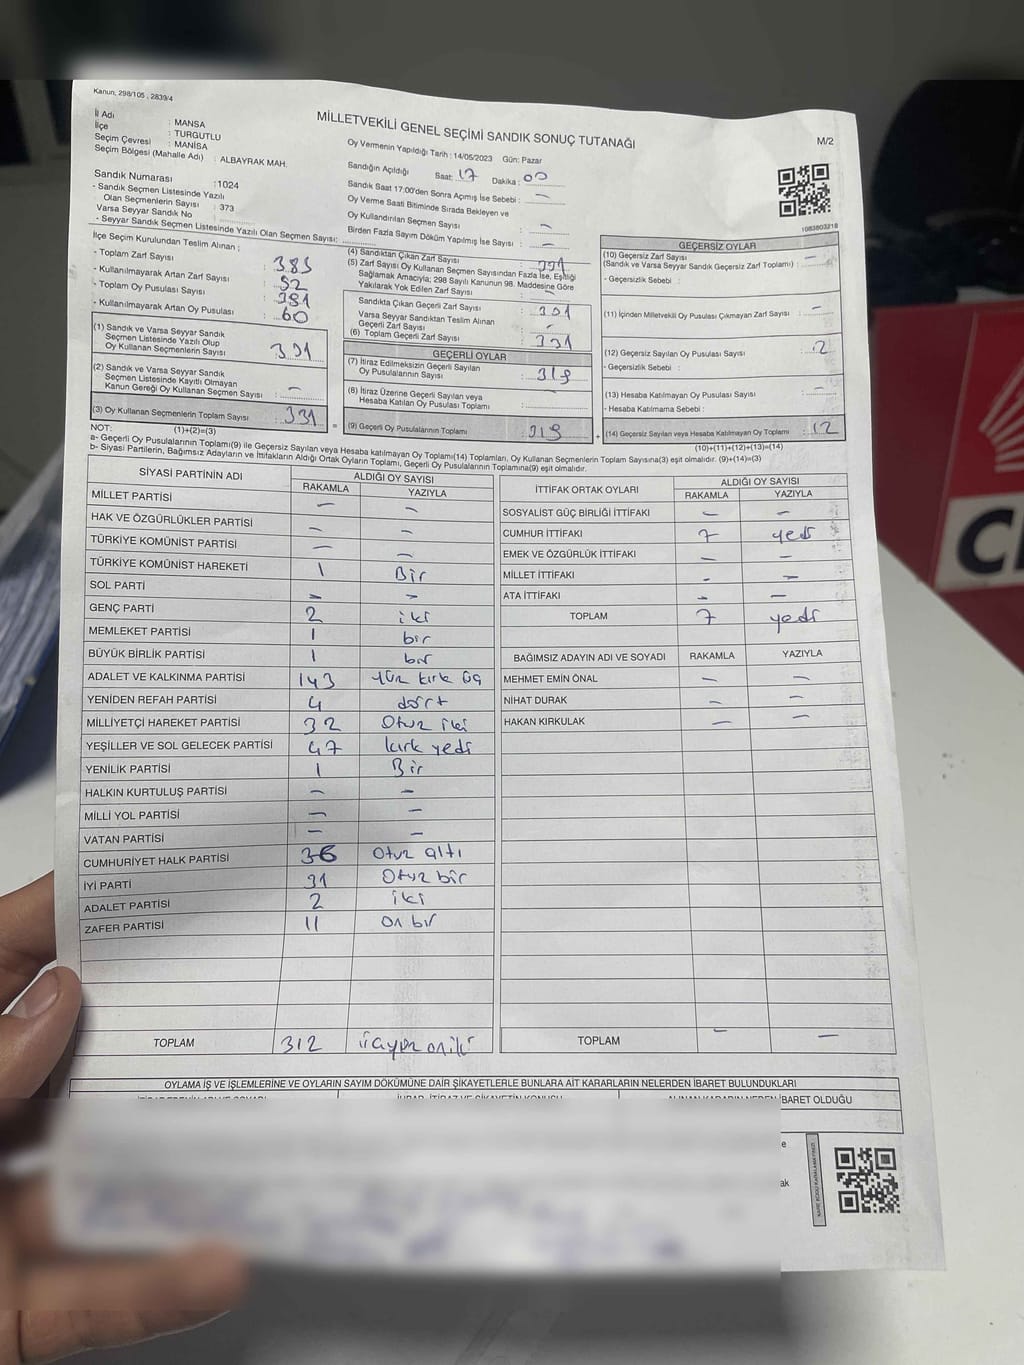 Kanun, 298/105 , 2839/4
MİLLETVEKİLİ GENEL SEÇİMİ SANDIK SONUÇ TUTANAĞI
M/2
İl Adı : MANSA
İlçe : TURGUTLU
Seçim Çevresi : MANİSA
Seçim Bölgesi (Mahalle Adı) : ALBAYRAK MAH.
Sandık Numarası : 1024
- Sandık Seçmen Listesinde Yazılı
Olan Seçmenlerin Sayısı : 373
Varsa Seyyar Sandık No
- Seyyar Sandık Seçmen Listesinde Yazılı Olan Seçmen Sayısı:
Oy Vermenin Yapıldığı Tarih : 14/05/2023 Gün: Pazar
Sandığın Açıldığı Saat: 17 Dakika : 00
Sandık Saat 17:00'den Sonra Açımış İse Sebebi : –
Oy Verme Saati Bitiminde Sırada Bekleyen ve
Oy Kullandırılan Seçmen Sayısı : –
Birden Fazla Sayım Döküm Yapılmış İse Sayısı : –
1083803218
İlçe Seçim Kurulundan Teslim Alınan ;
- Toplam Zarf Sayısı : 383
- Kullanılmayarak Artan Zarf Sayısı : 52
- Toplam Oy Pusulası Sayısı : 391
- Kullanılmayarak Artan Oy Pusulası : 60
(1) Sandık ve Varsa Seyyar Sandık
Seçmen Listesinde Yazılı Olup
Oy Kullanan Seçmenlerin Sayısı : 331
(2) Sandık ve Varsa Seyyar Sandık
Seçmen Listesinde Kayıtlı Olmayan
Kanun Gereği Oy Kullanan Seçmen Sayısı : –
(3) Oy Kullanan Seçmenlerin Toplam Sayısı : 331
(4) Sandıktan Çıkan Zarf Sayısı : 331
(5) Zarf Sayısı Oy Kullanan Seçmen Sayısından Fazla İse, Eşitliği
Sağlamak Amacıyla; 298 Sayılı Kanunun 98. Maddesine Göre
Yakılarak Yok Edilen Zarf Sayısı : –
Sandıkta Çıkan Geçerli Zarf Sayısı : 331
Varsa Seyyar Sandıktan Teslim Alınan
Geçerli Zarf Sayısı : –
(6) Toplam Geçerli Zarf Sayısı : 331
GEÇERLİ OYLAR
(7) İtiraz Edilmeksizin Geçerli Sayılan
Oy Pusulalarının Sayısı : 319
(8) İtiraz Üzerine Geçerli Sayılan veya
Hesaba Katılan Oy Pusulası Toplamı :
(9) Geçerli Oy Pusulalarının Toplamı : 319
GEÇERSİZ OYLAR
(10) Geçersiz Zarf Sayısı : –
(Sandık ve Varsa Seyyar Sandık Geçersiz Zarf Toplamı) :
- Geçersizlik Sebebi :
(11) İçinden Milletvekili Oy Pusulası Çıkmayan Zarf Sayısı : –
(12) Geçersiz Sayılan Oy Pusulası Sayısı : 12
- Geçersizlik Sebebi :
(13) Hesaba Katılmayan Oy Pusulası Sayısı : –
- Hesaba Katılmama Sebebi :
(14) Geçersiz Sayılan veya Hesaba Katılmayan Oy Pusulası Toplamı : 12
NOT: (1)+(2)=(3)
(10)+(11)+(12)+(13)=(14)
a- Geçerli Oy Pusulalarının Toplamı(9) ile Geçersiz Sayılan veya Hesaba katılmayan Oy Toplamı(14) Toplamları, Oy Kullanan Seçmenlerin Toplam Sayısına(3) eşit olmalıdır. (9)+(14)=(3)
b- Siyasi Partilerin, Bağımsız Adayların ve İttifakların Aldığı Ortak Oyların Toplamı, Geçerli Oy Pusulalarının Toplamına(9) eşit olmalıdır.
SİYASİ PARTİNİN ADI ALDIĞI OY SAYISI
RAKAMLA YAZIYLA
MİLLET PARTİSİ – –
HAK VE ÖZGÜRLÜKLER PARTİSİ – –
TÜRKİYE KOMÜNİST PARTİSİ – –
TÜRKİYE KOMÜNİST HAREKETİ 1 Bir
SOL PARTİ – –
GENÇ PARTİ 2 iki
MEMLEKET PARTİSİ 1 bir
BÜYÜK BİRLİK PARTİSİ 1 bir
ADALET VE KALKINMA PARTİSİ 143 yüz kırk üç
YENİDEN REFAH PARTİSİ 4 dört
MİLLİYETÇİ HAREKET PARTİSİ 32 Otuz iki
YEŞİLLER VE SOL GELECEK PARTİSİ 47 kırk yedi
YENİLİK PARTİSİ 1 Bir
HALKIN KURTULUŞ PARTİSİ – –
MİLLİ YOL PARTİSİ – –
VATAN PARTİSİ – –
CUMHURİYET HALK PARTİSİ 36 Otuz altı
İYİ PARTİ 31 Otuz bir
ADALET PARTİSİ 2 iki
ZAFER PARTİSİ 11 on bir
TOPLAM 312 üçyüz oniki
İTTİFAK ORTAK OYLARI ALDIĞI OY SAYISI
RAKAMLA YAZIYLA
SOSYALİST GÜÇ BİRLİĞİ İTTİFAKI – –
CUMHUR İTTİFAKI 7 yedi
EMEK VE ÖZGÜRLÜK İTTİFAKI – –
MİLLET İTTİFAKI – –
ATA İTTİFAKI – –
TOPLAM 7 yedi
BAĞIMSIZ ADAYIN ADI VE SOYADI RAKAMLA YAZIYLA
MEHMET EMİN ÖNAL – –
NİHAT DURAK – –
HAKAN KIRKULAK – –
TOPLAM – –
OYLAMA İŞ VE İŞLEMLERİNE VE OYLARIN SAYIM DÖKÜMÜNE DAİR ŞİKAYETLERLE BUNLARA AİT KARARLARIN NELERDEN İBARET BULUNDUKLARI
İBARET OLDUĞU